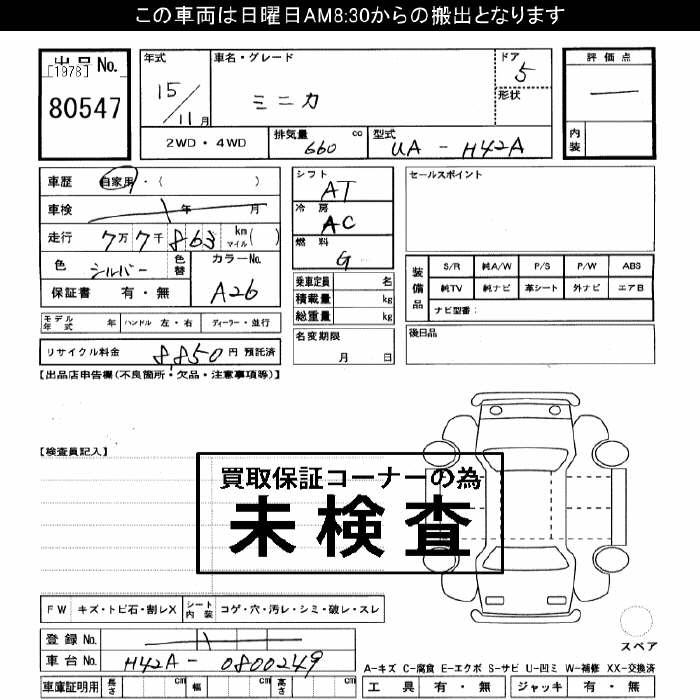 この車両は日曜日AM8:30からの搬出となります
出品 No.
[1978]
80547
年式
15/11月
車名・グレード
ミニカ
ドア
5
形状
評価点
―
内装
2WD・4WD
排気量
660
cc
型式
UA - H42A
車歴 自家用・( )
車検 年 月
走行 7万7千863 km マイル( )
色 シルバー 色替
カラーNo. A26
保証書 有・無
シフト AT
冷房 AC
燃料 G
乗車定員 名
積載量 kg
総重量 kg
セールスポイント
装備品
S/R 純A/W P/S P/W ABS
純TV 純ナビ 革シート 外ナビ エアB
ナビ型番:
モデル年式 年 ハンドル 左・右 ディーラー・並行
名変期限
月 日
後日品
リサイクル料金 8,850円 預託済
【出品店申告欄(不良箇所・欠品・注意事項等)】
【検査員記入】
買取保証コーナーの為
未検査
FW キズ・トビ石・割レX シート内装 コゲ・穴・汚レ・シミ・破レ・スレ
登録 No.
車台 No. H42A - 0800249
スペア
A-キズ C-腐食 E-エクボ S-サビ U-凹ミ W-補修 XX-交換済
車庫証明用 長さ cm 幅 cm 高さ cm
工具 有・無 ジャッキ 有・無